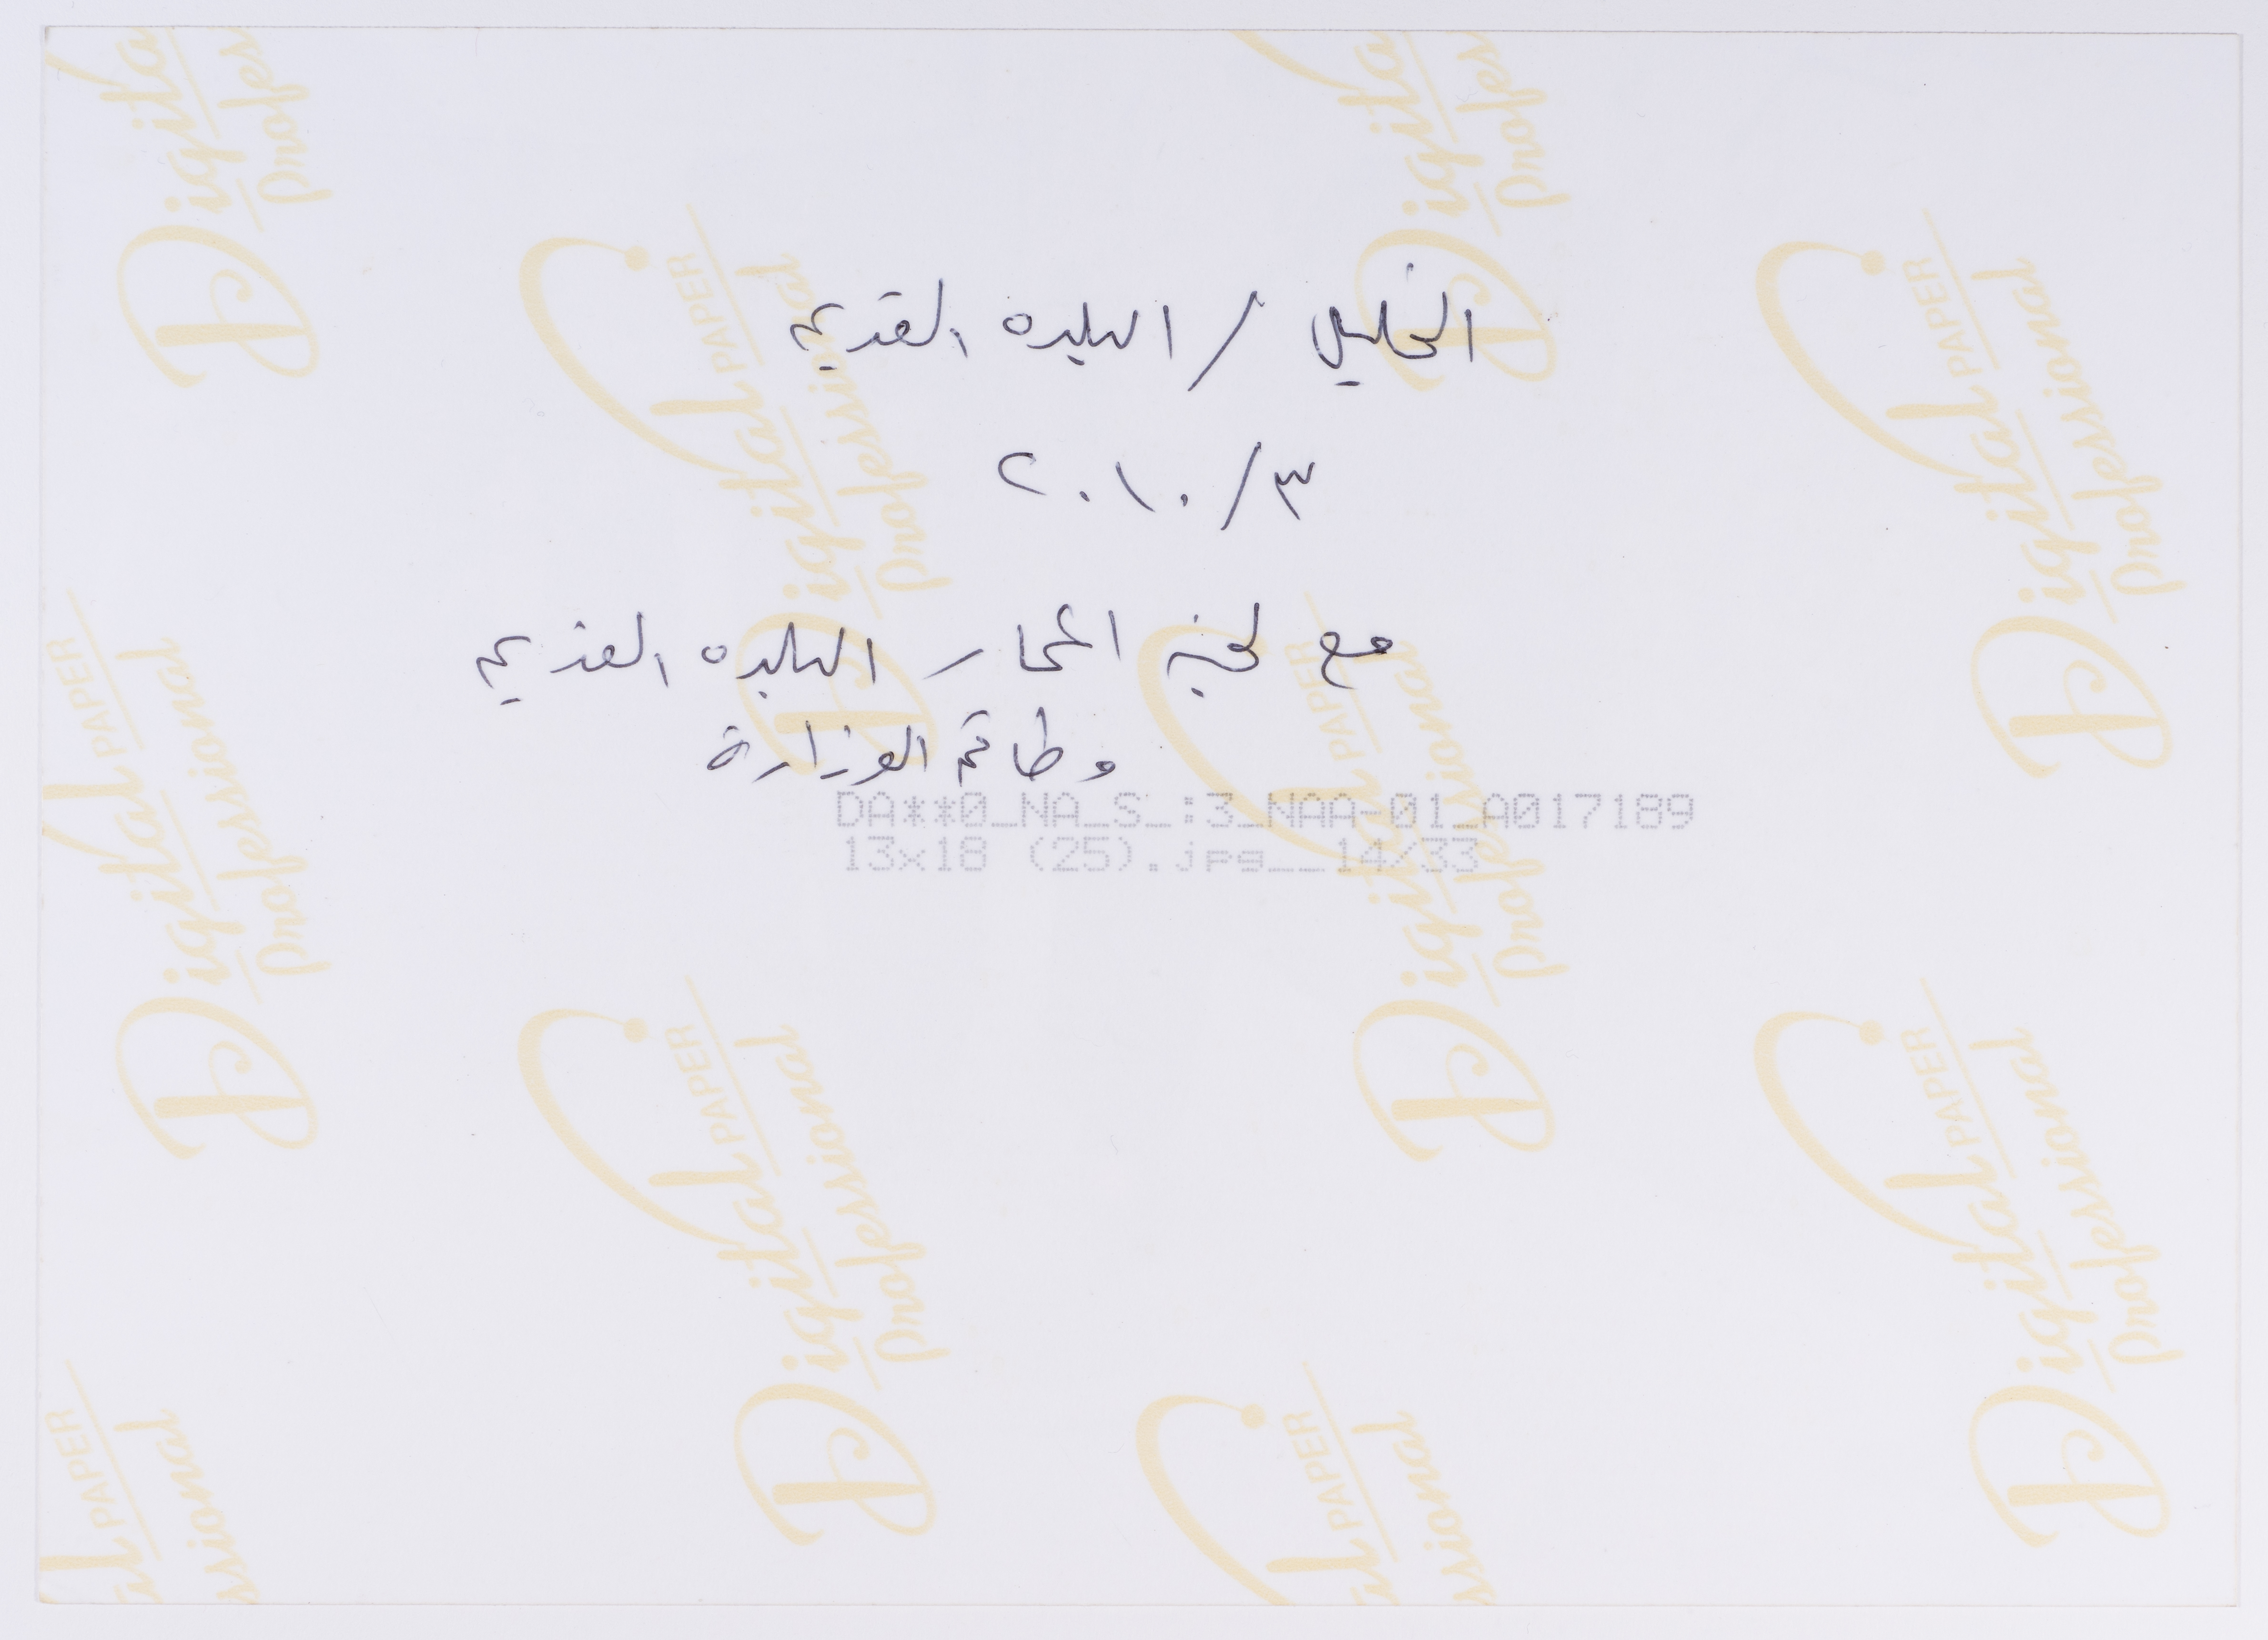 الخليل / البلده القديمه
٣/٢٠١٠
مع لجنه اعمار البلده القديمه
وطاقم الوزارة
DA**0_NA_S_:3_NAA-01_A017189
13x18 (25).jpg__14/33
Digital PAPER
Professional